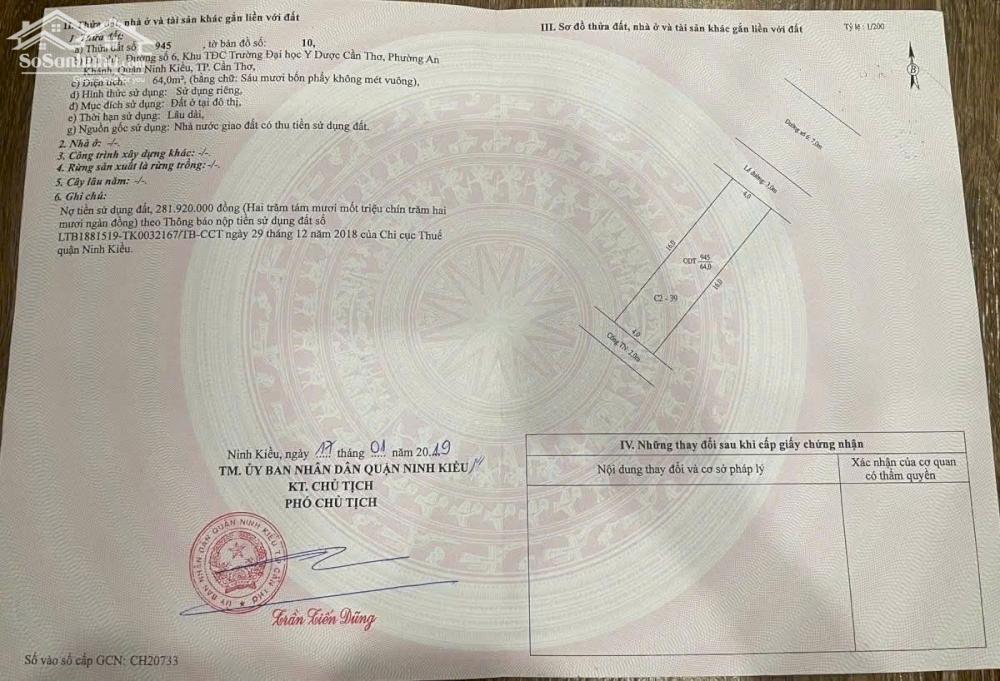 SoSanhNha
II. Thửa đất, nhà ở và tài sản khác gắn liền với đất
1. Thửa đất:
a) Thửa đất số: 945 , tờ bản đồ số: 10,
b) Địa chỉ: Đường số 6, Khu TĐC Trường Đại học Y Dược Cần Thơ, Phường An
Khánh, Quận Ninh Kiều, TP. Cần Thơ,
c) Diện tích: 64,0m², (bằng chữ: Sáu mươi bốn phẩy không mét vuông),
d) Hình thức sử dụng: Sử dụng riêng,
đ) Mục đích sử dụng: Đất ở tại đô thị,
e) Thời hạn sử dụng: Lâu dài,
g) Nguồn gốc sử dụng: Nhà nước giao đất có thu tiền sử dụng đất.
2. Nhà ở: -/-.
3. Công trình xây dựng khác: -/-.
4. Rừng sản xuất là rừng trồng:-/-.
5. Cây lâu năm: -/-.
6. Ghi chú:
Nợ tiền sử dụng đất, 281.920.000 đồng (Hai trăm tám mươi mốt triệu chín trăm hai
mươi ngàn đồng) theo Thông báo nộp tiền sử dụng đất số
LTB1881519-TK0032167/TB-CCT ngày 29 tháng 12 năm 2018 của Chi cục Thuế
quận Ninh Kiều.
Ninh Kiều, ngày 17 tháng 01 năm 2019
TM. ỦY BAN NHÂN DÂN QUẬN NINH KIỀU
KT. CHỦ TỊCH
PHÓ CHỦ TỊCH
ỦY BAN NHÂN DÂN QUẬN NINH KIỀU T.P CẦN THƠ
Trần Tiến Dũng
Số vào sổ cấp GCN: CH20733
III. Sơ đồ thửa đất, nhà ở và tài sản khác gắn liền với đất
Tỷ lệ : 1/200
B
Đường số 6: 7,0m
Lề đường: 3,0m
4,0
16,0
ODT 945
64,0
16,0
C2 - 39
4,0
Cống TN: 2,0m
IV. Những thay đổi sau khi cấp giấy chứng nhận
Nội dung thay đổi và cơ sở pháp lý
Xác nhận của cơ quan
có thẩm quyền